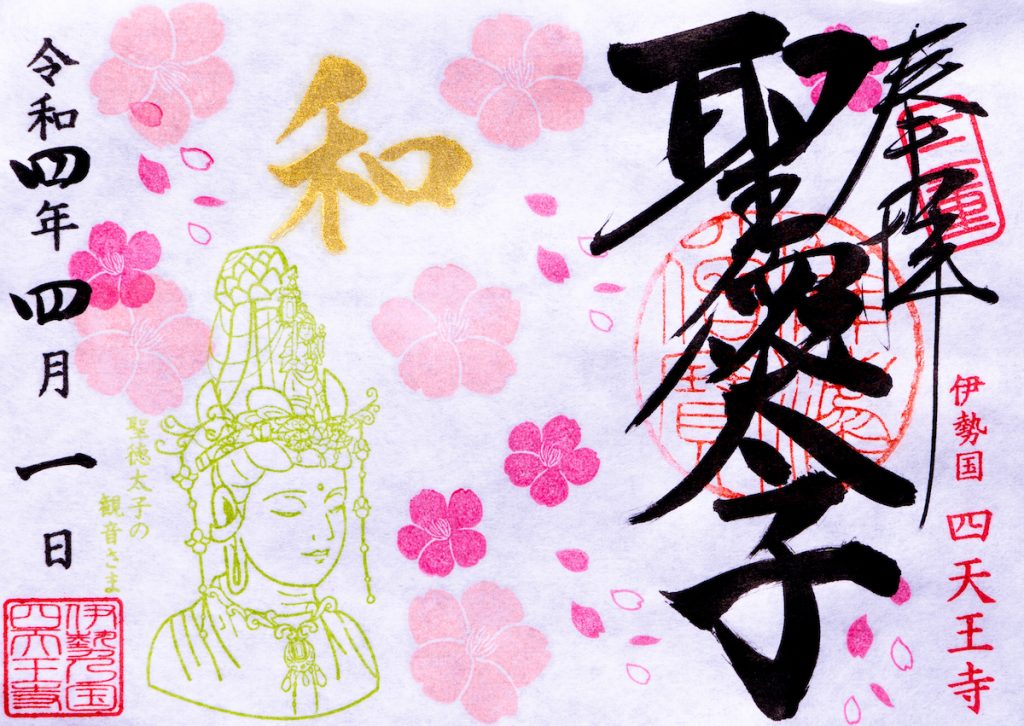 奉拝
三重
聖徳太子
伊勢国 四天王寺
和
聖徳太子の
観音さま
令和四年四月一日
伊勢乃国
四天王寺